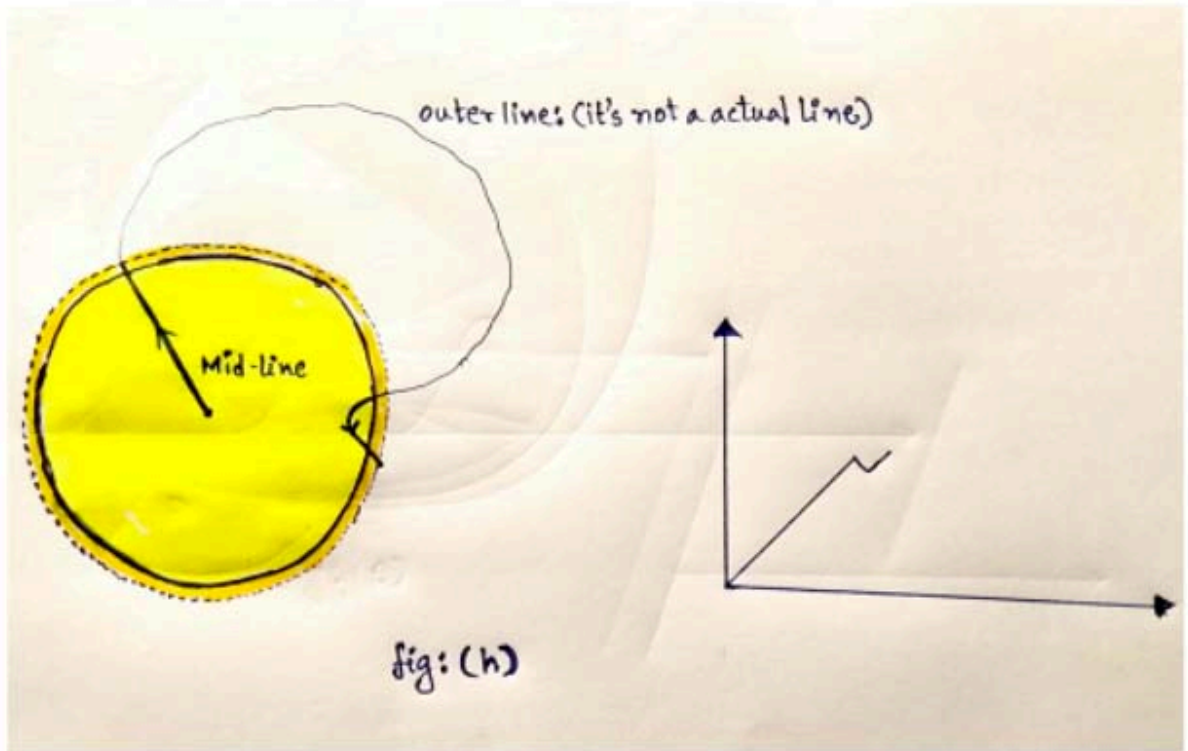 outer line: (it's not a actual line)
Mid-line
fig: (h)